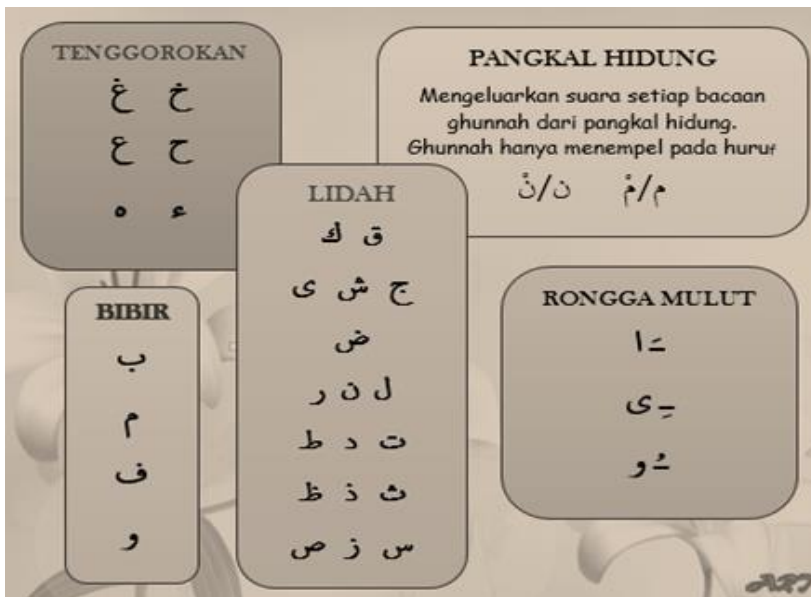 TENGGOROKAN
خ غ
ح ع
ء ه
PANGKAL HIDUNG
Mengeluarkan suara setiap bacaan
ghunnah dari pangkal hidung.
Ghunnah hanya menempel pada huruf
م/مْ ن/نْ
LIDAH
ق ك
ج ش ى
ض
ل ن ر
ت د ط
ث ذ ظ
س ز ص
BIBIR
ب
م
ف
و
RONGGA MULUT
ـَ ا
ـِ ى
ـُ و
ART